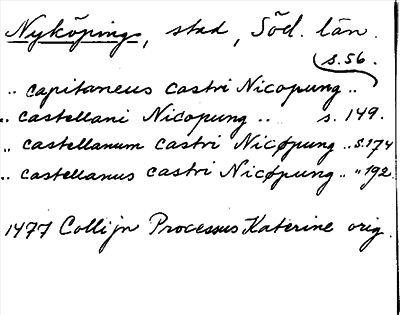 Nyköpings, stad, Söd. län.
s.56.
.. capitaneus castri Nicopung ..
.. castellani Nicopung .. s. 149.
.. castellanum castri Nicøpung .. s.174
.. castellanus castri Nicøpung .. " 192.
1477 Collijn Processus Katerine orig.